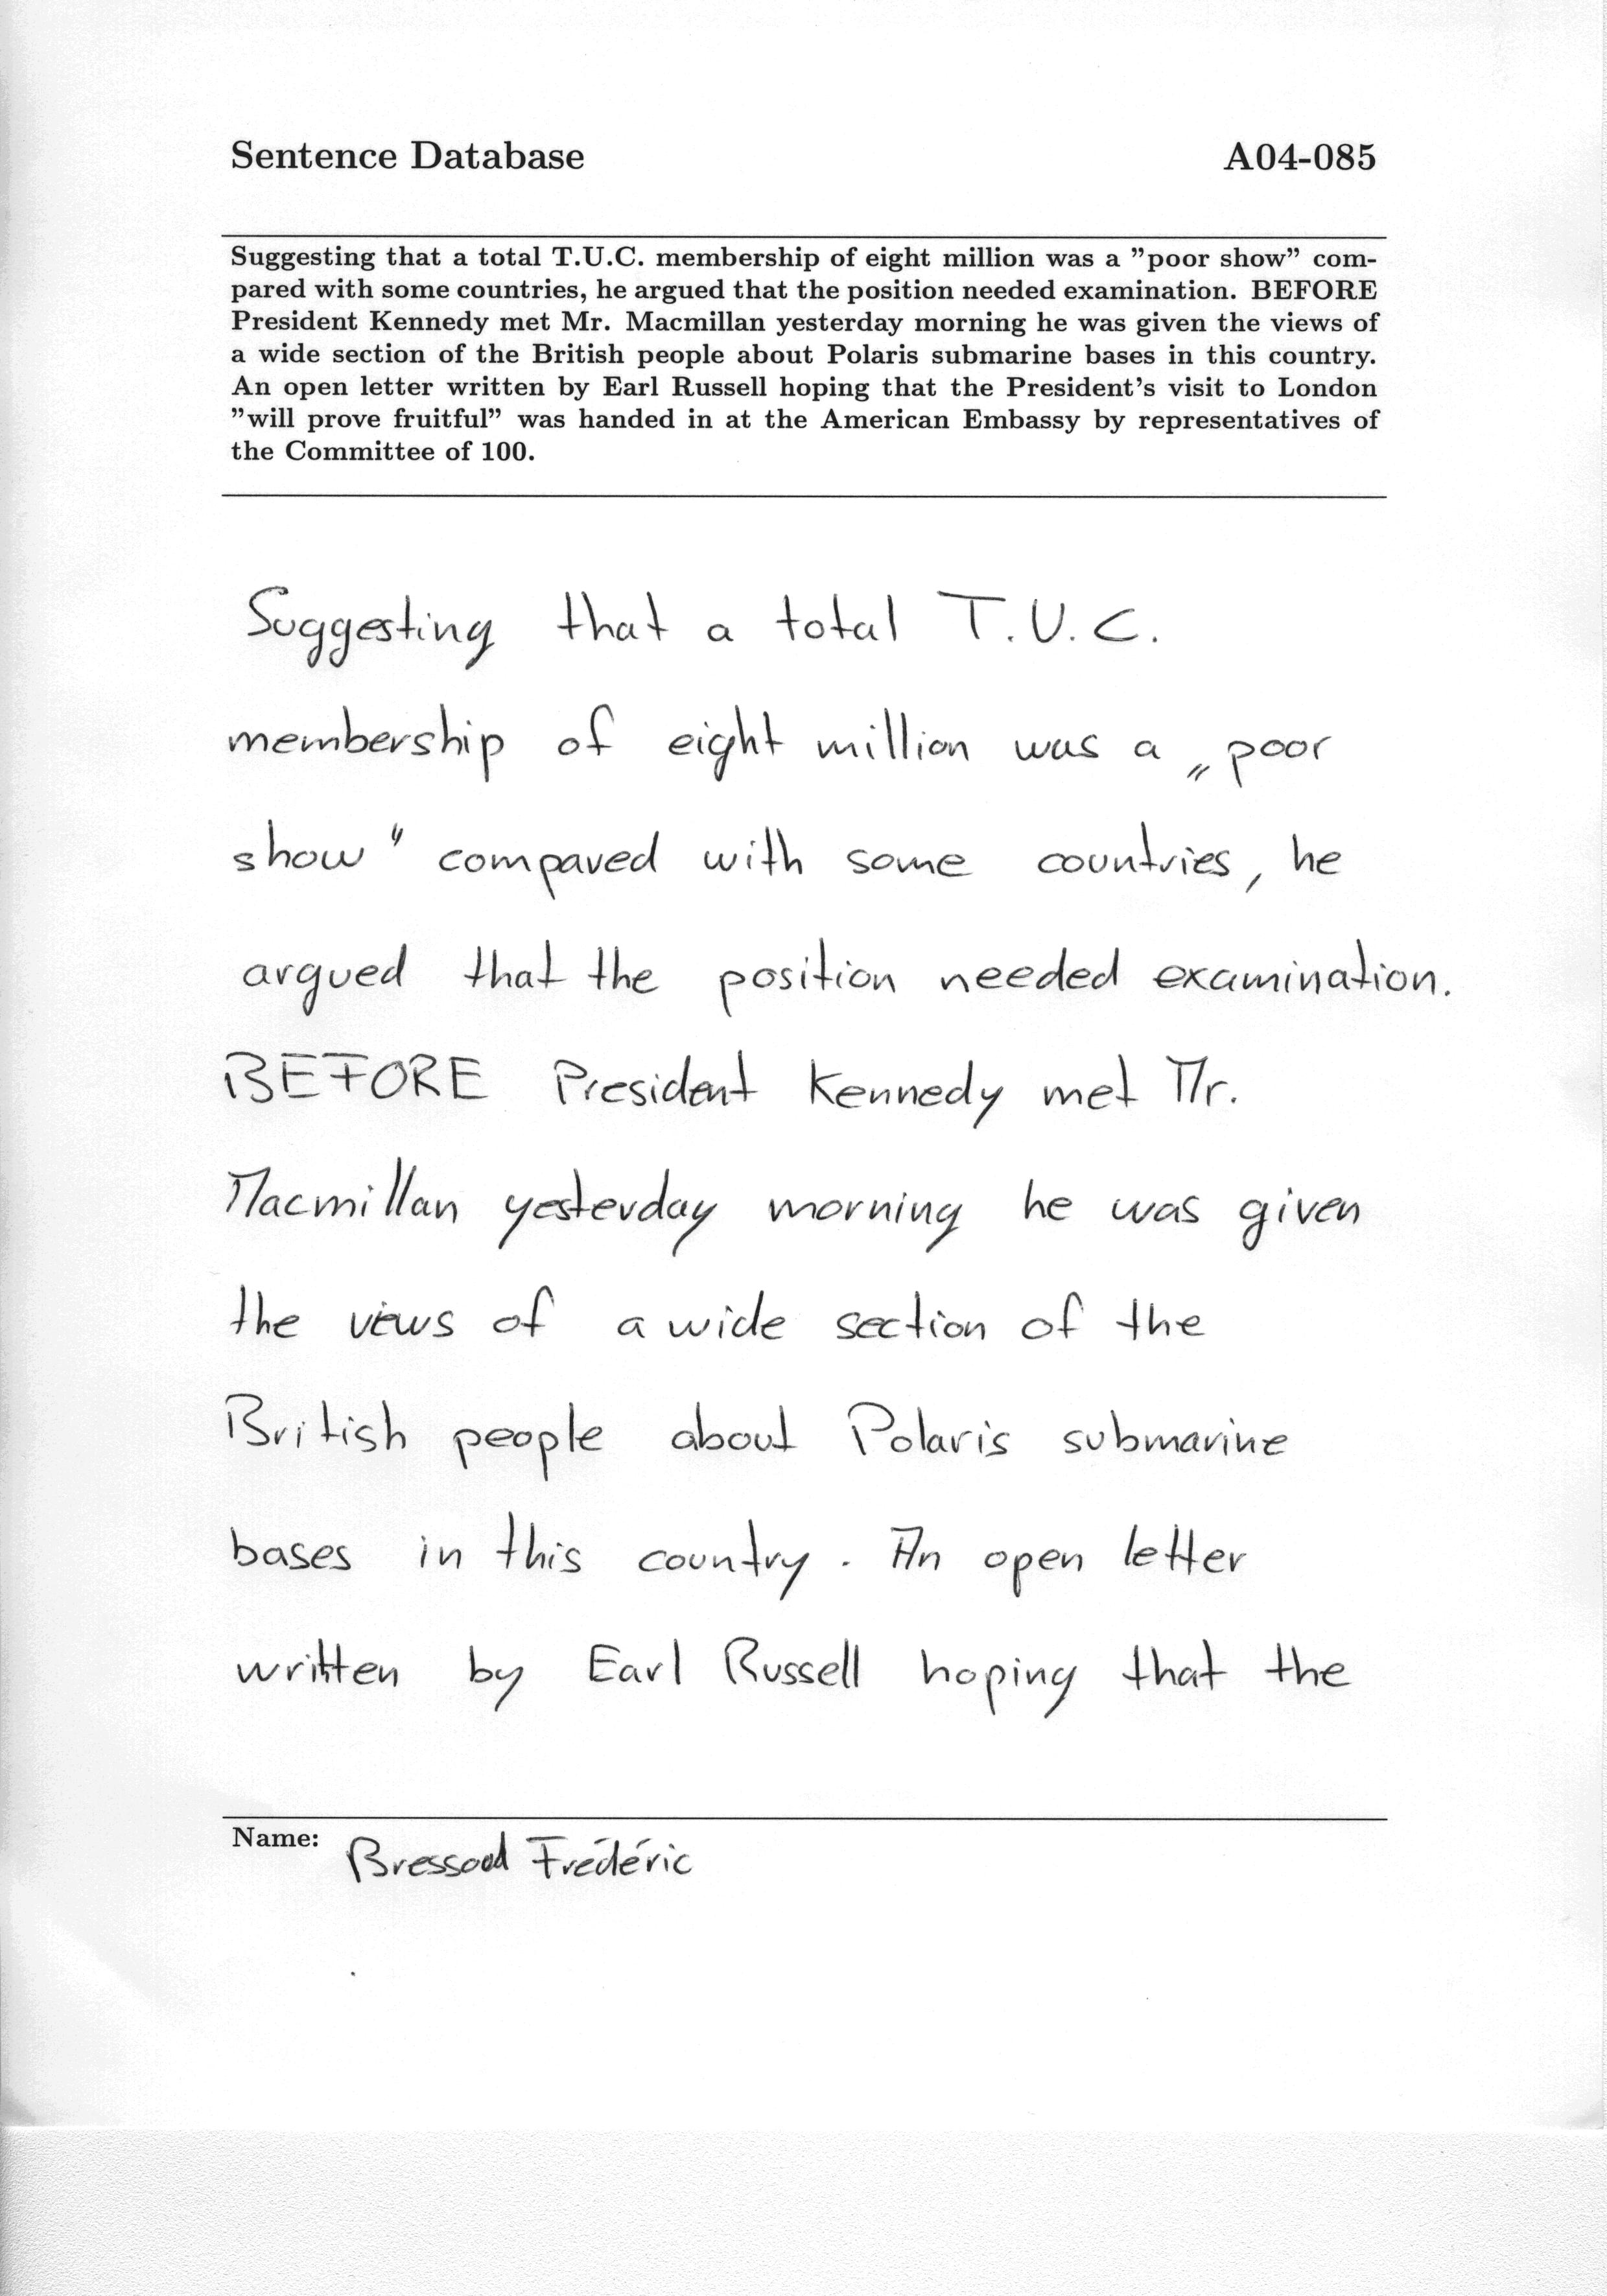 Sentence Database A04-085
Suggesting that a total T.U.C. membership of eight million was a ”poor show” com-
pared with some countries, he argued that the position needed examination. BEFORE
President Kennedy met Mr. Macmillan yesterday morning he was given the views of
a wide section of the British people about Polaris submarine bases in this country.
An open letter written by Earl Russell hoping that the President’s visit to London
”will prove fruitful” was handed in at the American Embassy by representatives of
the Committee of 100.
Suggesting that a total T.U.C.
membership of eight million was a „poor
show" compared with some countries, he
argued that the position needed examination.
BEFORE President Kennedy met Mr.
Macmillan yesterday morning he was given
the views of a wide section of the
British people about Polaris submarine
bases in this country. An open letter
written by Earl Russell hoping that the
Name: Frédéric